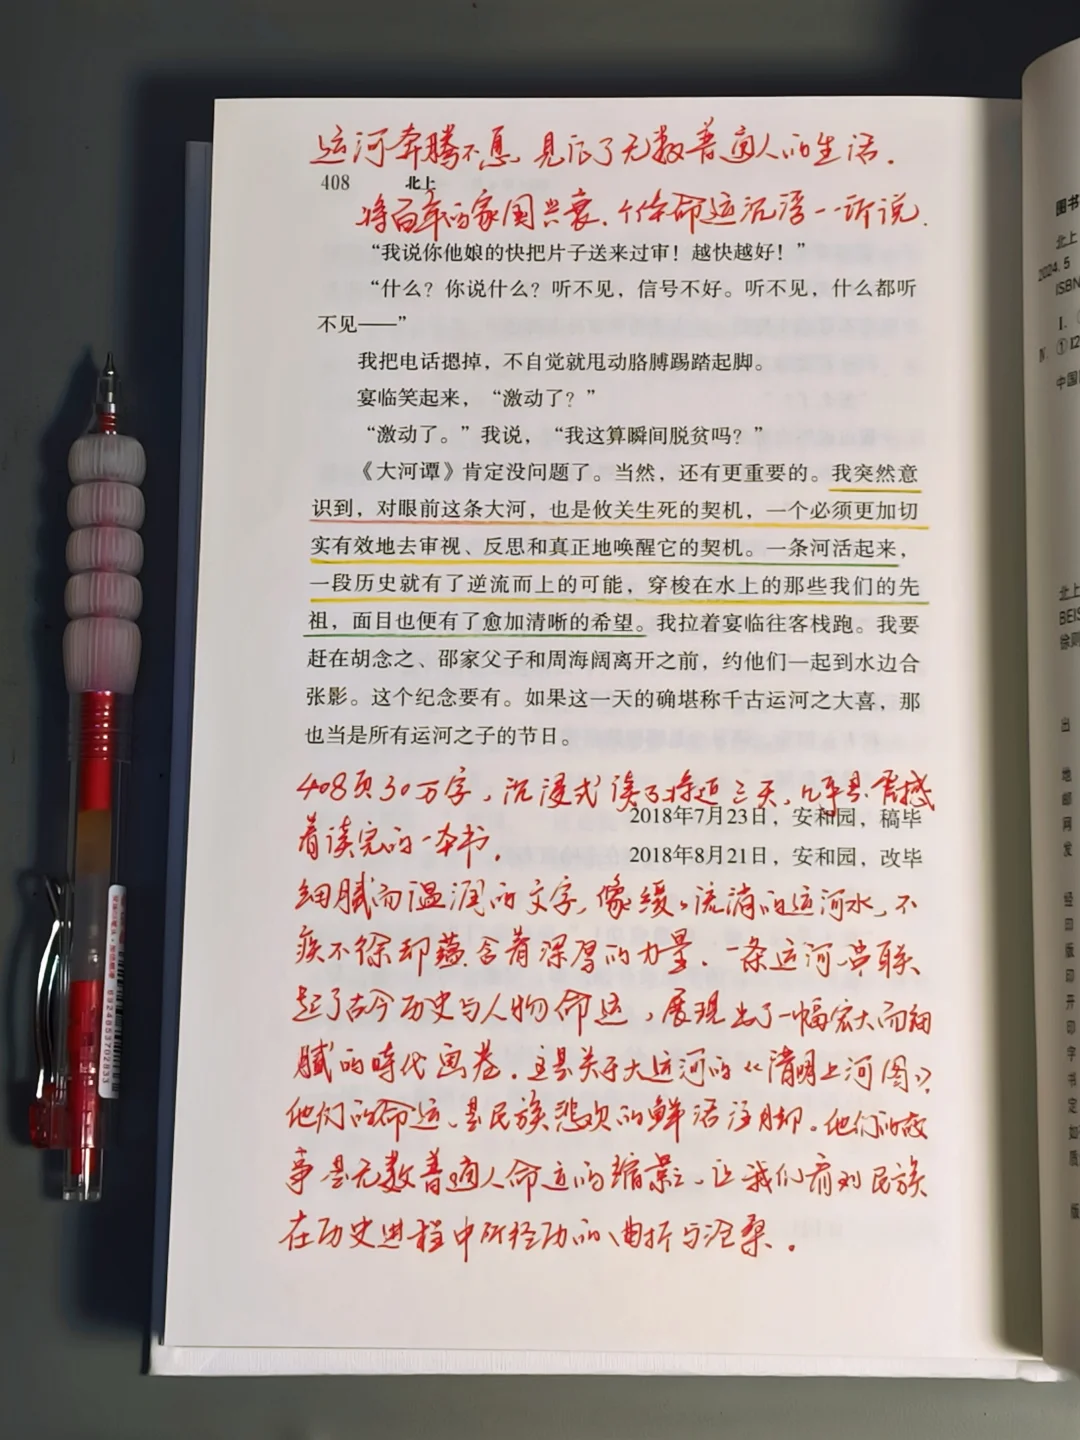 运河奔腾不息，见证了无数普通人的生活。
408 北上
将百年的家国兴衰、个体命运沉浮一一诉说。
“我说你他娘的快把片子送来过审！越快越好！”
“什么？你说什么？听不见，信号不好。听不见，什么都听
不见——”
我把电话摁掉，不自觉就甩动胳膊踢踏起脚。
宴临笑起来，“激动了？”
“激动了。”我说，“我这算瞬间脱贫吗？”
《大河谭》肯定没问题了。当然，还有更重要的。我突然意
识到，对眼前这条大河，也是攸关生死的契机，一个必须更加切
实有效地去审视、反思和真正地唤醒它的契机。一条河活起来，
一段历史就有了逆流而上的可能，穿梭在水上的那些我们的先
祖，面目也便有了愈加清晰的希望。我拉着宴临往客栈跑。我要
赶在胡念之、邵家父子和周海阔离开之前，约他们一起到水边合
张影。这个纪念要有。如果这一天的确堪称千古运河之大喜，那
也当是所有运河之子的节日。
408页30万字，沉浸式读了将近三天，几乎是震撼
2018年7月23日，安和园，稿毕
着读完的一本书。
2018年8月21日，安和园，改毕
细腻而温润的文字，像缓缓流淌的运河水，不
疾不徐却蕴含着深厚的力量。一条运河，串联
起了古今历史与人物命运，展现出了一幅宏大而细
腻的時代画卷。这是关于大运河的《清明上河图》，
他们的命运，是民族悲欢的鲜活注脚。他们的故
事是无数普通人命运的缩影，让我们看到民族
在历史进程中所经历的曲折与沧桑。
图书
北上
2024.5
ISBN
Ⅰ.
Ⅳ. ①I2
中国
北上
BEIS
徐则
出
地
邮
网
发
经
印
版
印
开
印
字
书
定
如
质
版
6924853702833